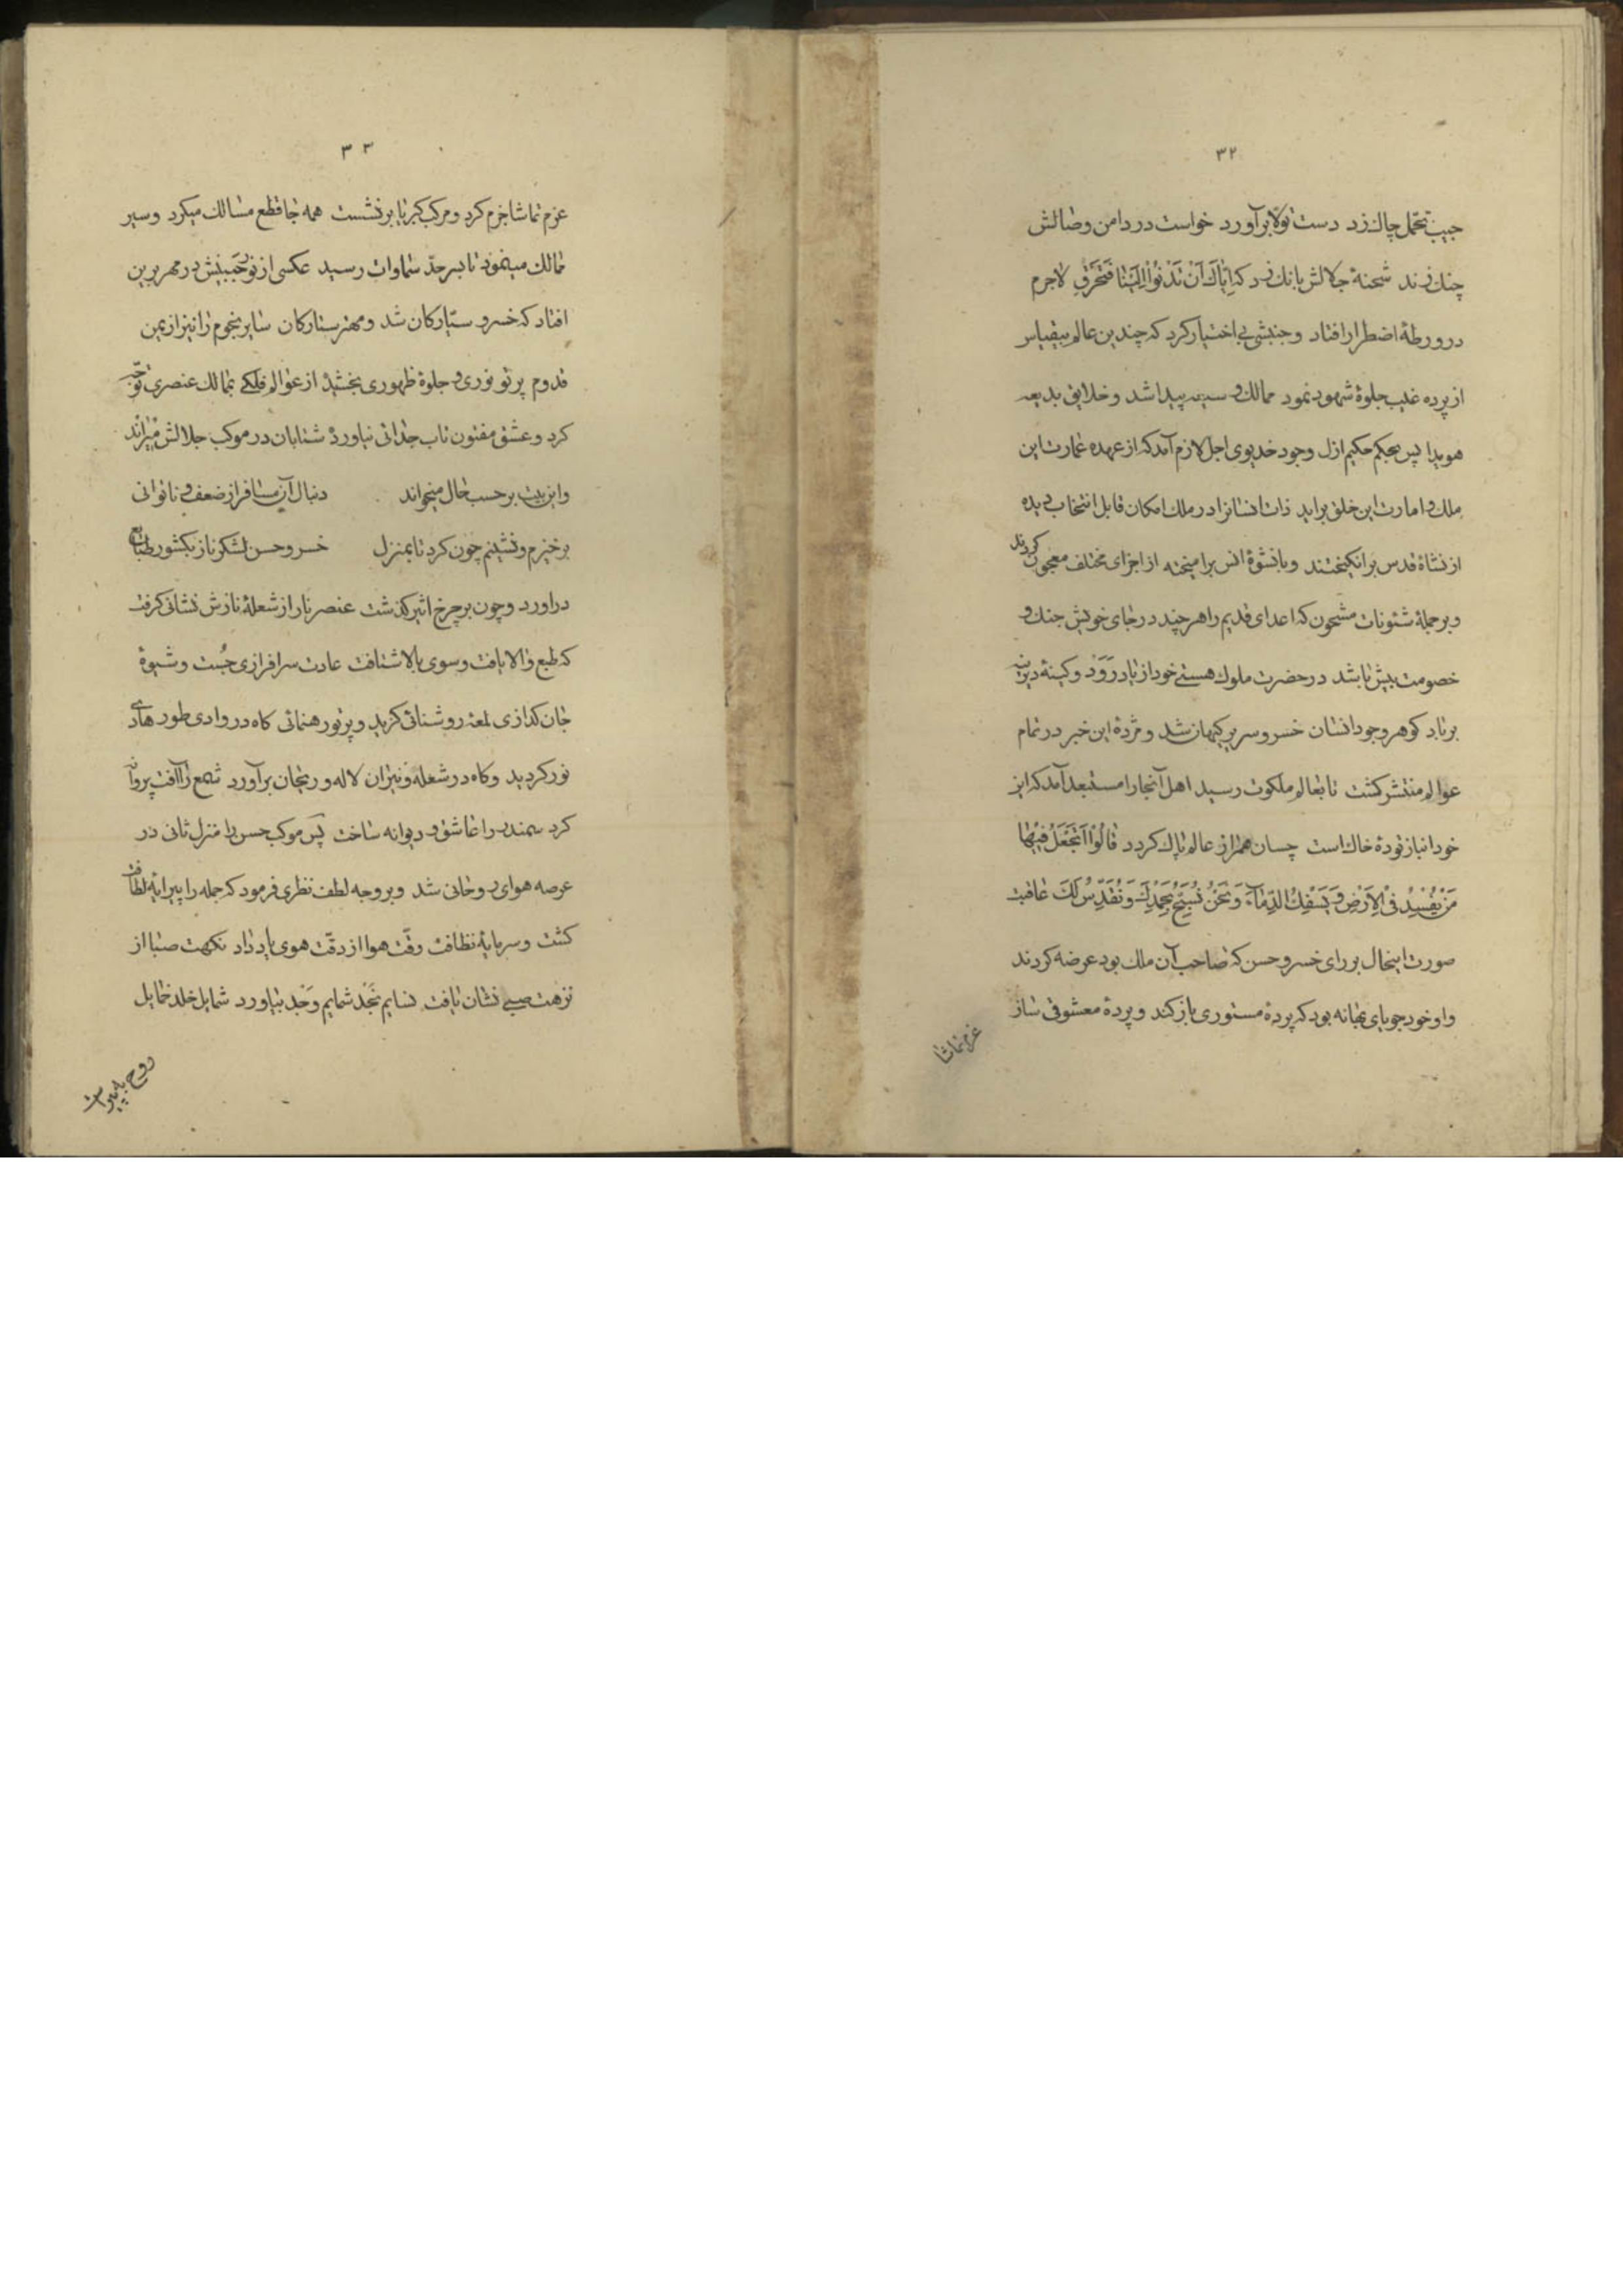 ۳۲
جیب تحمل چاک زد دست تولا برآورد خواست در دامن وصالش
چنک زند شحنهٔ جلالش بانک زد که اِیّاکَ اَنْ تَدْنُوْا اِلَیْنٰا فَتَحْرَقِ لاجرم
در ورطهٔ اضطرار افتاد و جنبشی بی‌اختیار کرد که چندین عالم بیقیاس
از پرده غیب جلوهٔ شهود نمود ممالک وسیعه پیدا شد و خلایق بدیعه
هویدا پس بحکم حکیم ازل وجود خدیوی اجل لازم آمد که از عهده عمارت این
ملک و امارت این خلق براید ذات انسانرا در ملک امکان قابل انتخاب دیده
از نشاهٔ قدس برانکیختند و با نشوهٔ انس برامیخته از اجزای مختلف معجون کردند
و بر جملهٔ شئونات مشحون که اعدای قدیم را هر چند در جای خویش جنک و
خصومت بیش باشد در حضرت ملوک هستی خود از یاد رَوَدْ و کینهٔ دیرینه
برباد کوهر وجود انسان خسرو سریر کیهان شد و مژدهٔ این خبر در تمام
عوالم منتشر کشت تا بعالم ملکوت رسید اهل آنجا را مستبعد آمد که این
خود انباز تودهٔ خاک است چسان همراز عالم پاک کردد قٰالُوْا اَتَجْعَلُ فیٖهٰا
مَنْ یُفْسِدُ فیِ الْاَرْضِ وَ یَسْفِکُ الدِّمٰآءَ وَ نَحْنُ نُسَبِّحُ بِحَمْدِکَ وَ نُقَدِّسُ لَکَ عاقبت
صورت اینحال بر رای خسرو حسن که صاحب آن ملک بود عرضه کردند
و او خود جویای بهانه بود که پردهٔ مستوری باز کند و پردهٔ معشوقی ساز
عزم تماشا
۳۳
عزم تماشا جزم کرد و مرکب کبریا برنشست همه جا قطع مسالک میکرد و سیر
ممالک مینمود تا بسر حدّ سماوات رسید عکسی از نور جَبینش در مهر برین
افتاد که خسرو سیّارکان شد و مهتر ستارکان سایر نجوم را نیز از یمن
قدوم پرتو نوری و جلوهٔ ظهوری بخشید از عوالم فلکی بممالک عنصری توجّه
کرد و عشق مفتون تاب جدائی نیاوردهٔ شتابان در موکب جلالش میراند
و این بیت بر حسب حال میخواند دنبال آن مسافر از ضعف و ناتوانی
برخیزم و نشینم چون کرد تا بمنزل خسرو حسن لشکر ناز بکشور طبایع
دراورد و چون بر چرخ اثیر کذشت عنصر نار از شعلهٔ نازش نشانی کرفت
که طبع والا یافت و سوی بالا شتافت عادت سرافرازی جُست و شیوهٔ
جان کدازی لمعهٔ روشنائی کزید و پرتو رهنمائی کاه در وادی طور هادی
نور کردید و کاه در شعلهٔ نیران لاله و ریحان برآورد شمع را آفت پروانه
کرد سمندر را عاشق و دیوانه ساخت پس موکب حسن را منزل ثانی در
عرصه هوای روحانی شد و بر وجه لطف نظری فرمود که جمله را پیرایهٔ لطافت
کشت و سرمایهٔ نظافت رقّت هوا از دقّت هوی یاد داد نکهت صبا از
نزهت صبی نشان یافت نسایم نَجْد شمایم وَجْد بیاورد شمایل خلد خمایل
روح